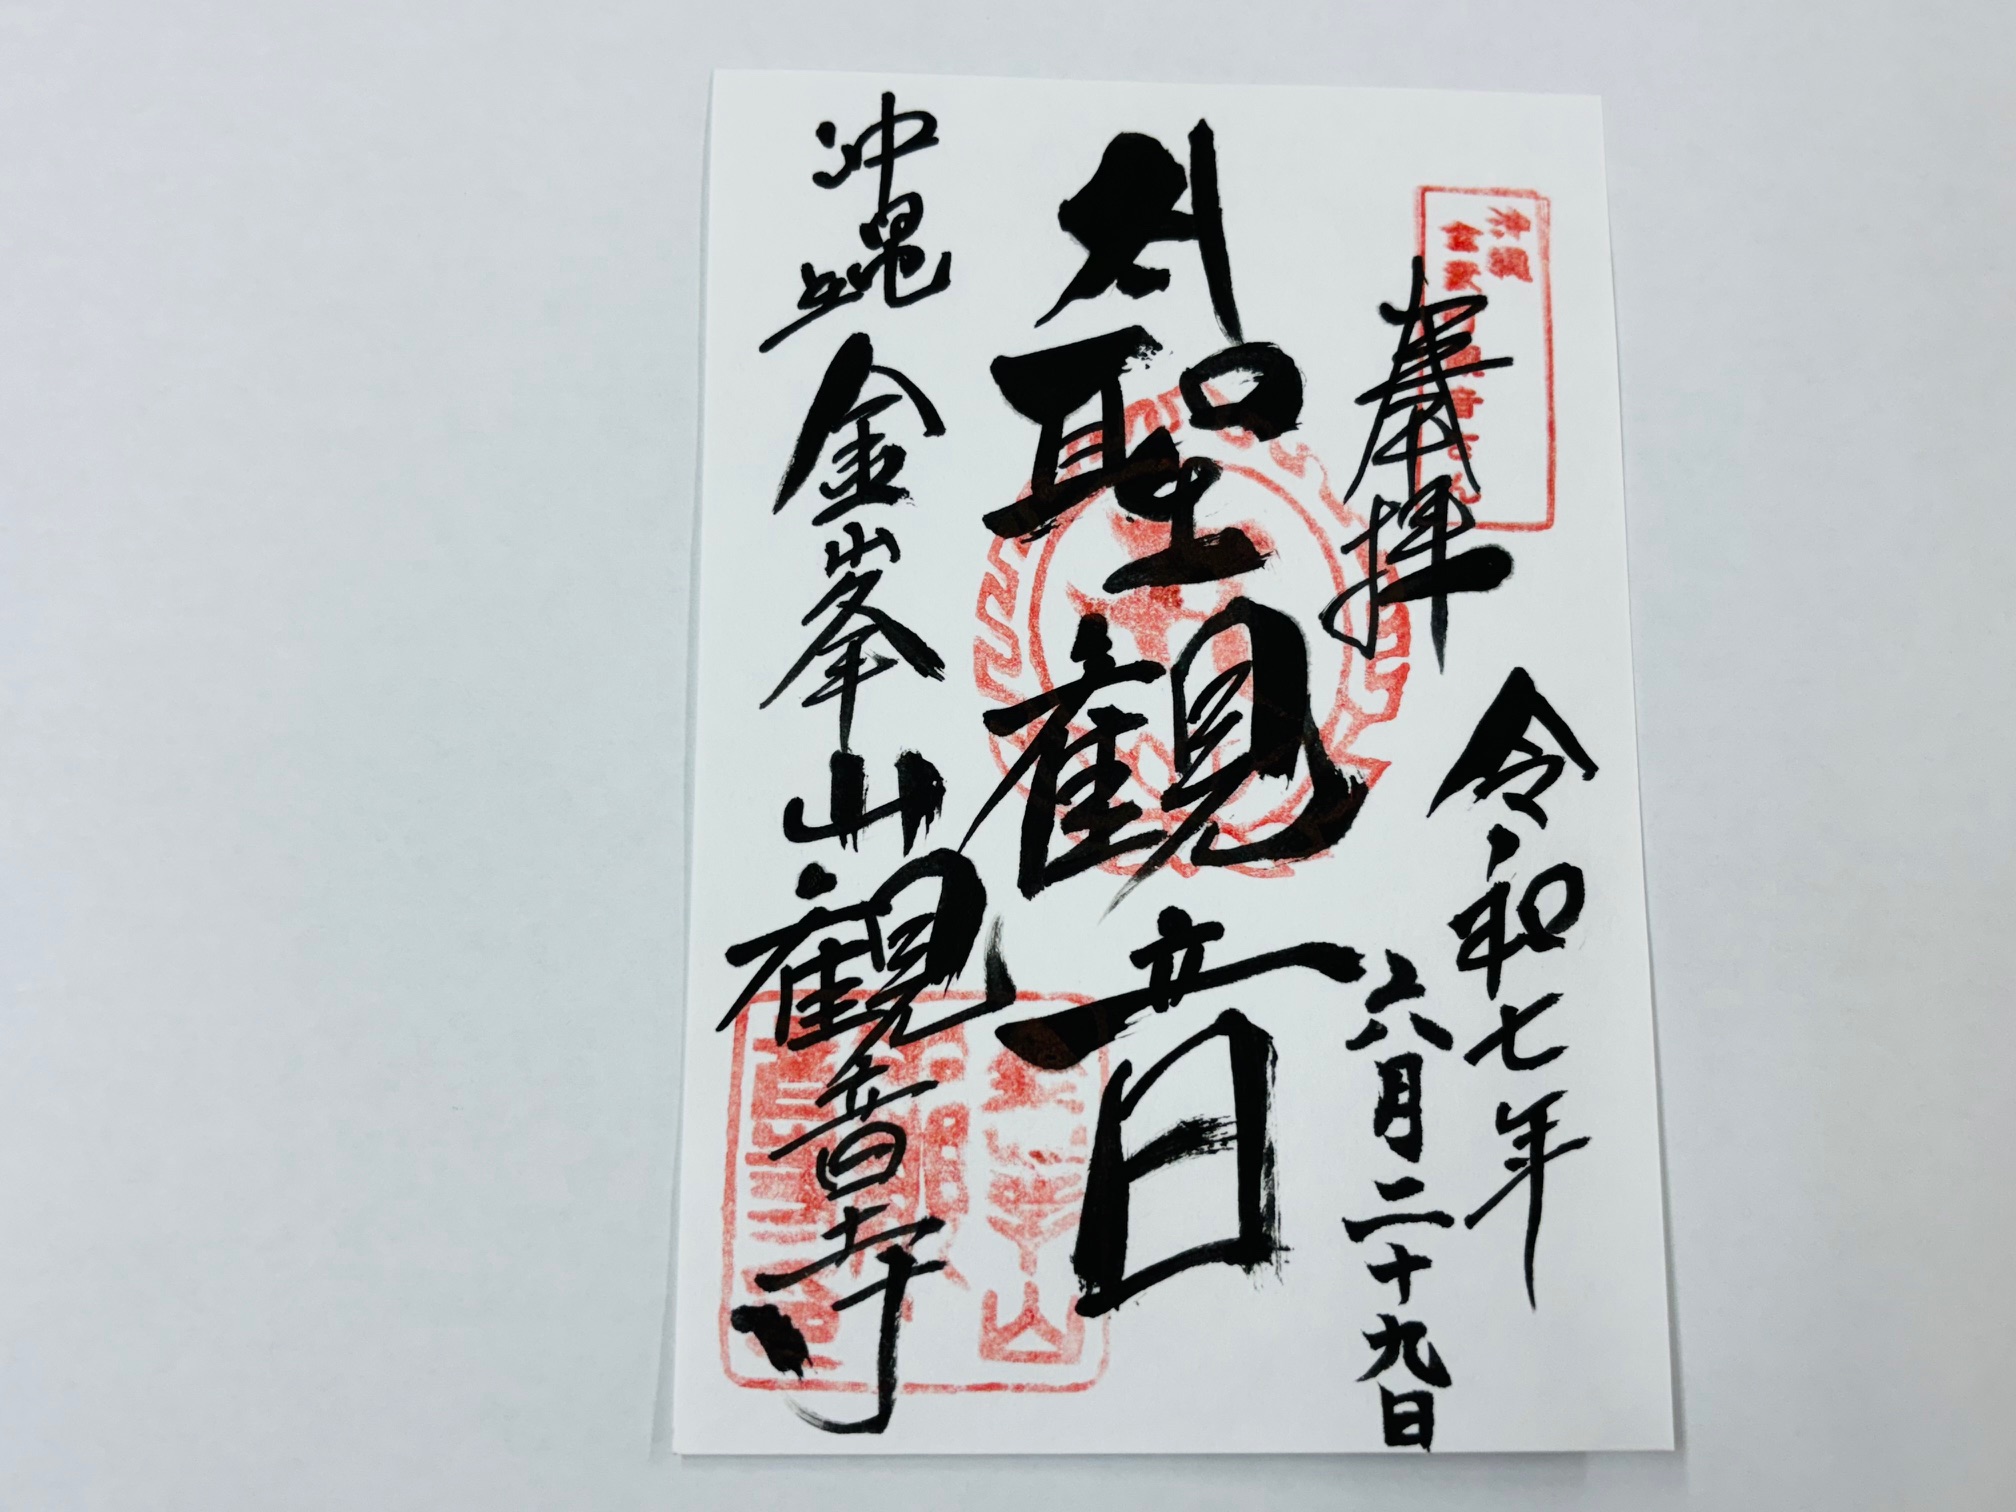 奉拝
令和七年
六月二十九日
聖観音
沖縄 金峯山観音寺
沖縄